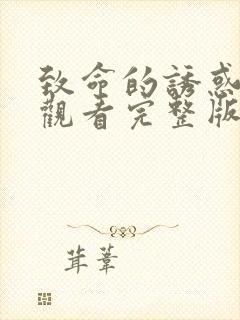 致命的誘惑
觀看完整版
茸葦